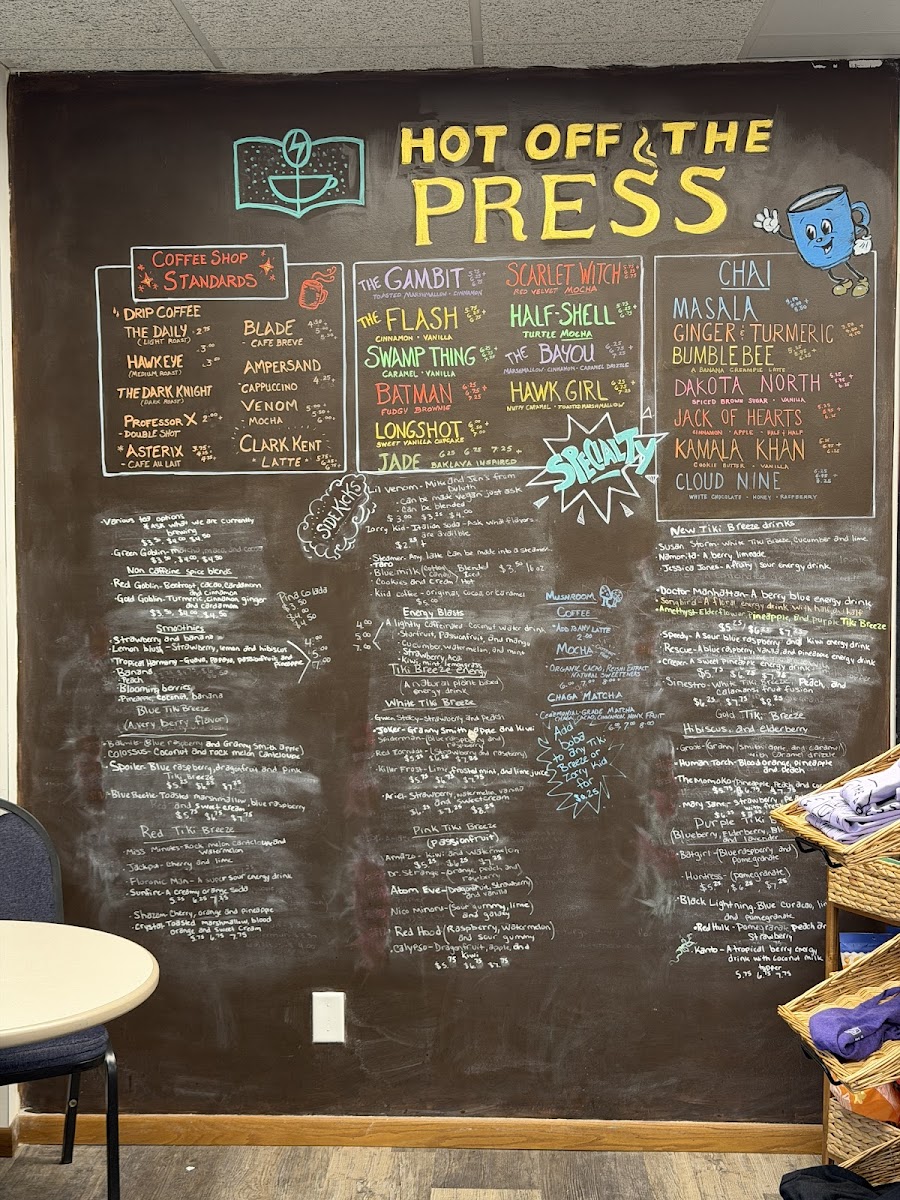 HOT OFF THE
PRESS
COFFEE SHOP
STANDARDS
DRIP COFFEE
THE DAILY - 2.75
(LIGHT ROAST)
HAWKEYE
(MEDIUM ROAST)
THE DARK KNIGHT
(DARK ROAST)
PROFESSOR X 2.00
- DOUBLE SHOT
* ASTERIX
- CAFE AU LAIT
BLADE
- CAFE BREVE
AMPERSAND
-CAPPUCCINO 4.25+
VENOM
MOCHA
CLARK KENT
- LATTE
THE GAMBIT
TOASTED MARSHMALLOW - CINNAMON
THE FLASH
CINNAMON - VANILLA
SWAMP THING
CARAMEL - VANILLA
BATMAN
FUDGY BROWNIE
LONGSHOT
SWEET VANILLA CUPCAKE
JADE 6.25 6.75 7.25+
BAKLAVA INSPIRED
SCARLET WITCH
RED VELVET MOCHA
HALF-SHELL
TURTLE MOCHA
THE BAYOU
MARSHMALLOW - CINNAMON - CARAMEL DRIZZLE
HAWK GIRL
NUTTY CARAMEL - TOASTED MARSHMALLOW
SPECIALTY
CHAI
MASALA
GINGER & TURMERIC
BUMBLEBEE
A BANANA CREAMPIE LATTE
DAKOTA NORTH
SPICED BROWN SUGAR - VANILLA
JACK OF HEARTS
CINNAMON - APPLE - HALF & HALF
KAMALA KHAN
COOKIE BUTTER - VANILLA
CLOUD NINE
WHITE CHOCOLATE - HONEY - RASPBERRY
-Various tea options
Ask what we are currently
brewing
$3.50 $4.00 $4.50
-Green Goblin- matcha,
$3.50 $4.00 $4.50
Non caffeine spice blends
-Red Goblin- Beetroot, cacao, cardamom
and cinnamon
-Gold Goblin- Turmeric, cinnamon, ginger
and cardamom
Pina Colada
$3.50
$4.00
$4.50
Smoothies
-Strawberry and banana
Lemon blush - Strawberry, lemon and hibiscus
-Tropical Harmony - Guava, papaya, passionfruit, and
pineapple
-Banana
-Peach
-Blooming berries
-Pineapple, coconut, banana
4.00
5.00
7.00
Blue Tiki Breeze
(A very berry flavor)
(Blue raspberry and Granny Smith apple)
Colossus- Coconut and rock melon cantelope
Spoiler- Blue raspberry, dragonfruit and pink
Tiki Breeze
-Blue Beetle- Toasted marshmallow, blue raspberry
and sweet cream
$5.75 $6.75 $7.75
Red Tiki Breeze
Miss Minutes- Rock melon cantelope and
watermelon
-Jackpot- cherry and lime
-Fluronic Man- A super sour energy drink
-Sunfire- A creamy orange soda
5.25 6.25 7.25
-Shazam Cherry, orange and pineapple
-Crystal- Toasted marshmallow, blood
orange and sweet cream
5.75 6.75 7.75
SIDEKICKS
Lil Venom- Mike and Jen's from
Duluth
- can be made vegan just ask
- Can be blended
$3.00 $3.25 $4.00
Zorry Kid- Italian soda - Ask what flavors
are availible
-Steamer- Any latte can be made into a steamer
Blue milk (Cotton Candy) Blended
Iced
Hot
$3.50 16oz
Cookies and Cream
Kid coffee- original, cocoa or caramel
$5.00
Energy Blasts
-A lightly caffeinated coconut water drink
- Starfruit, Passionfruit, and mango
- Cucumber, watermelon, and mint
- Strawberry Acai
- Kiwi, mint, lemongrass
4.00
5.00
7.00
Tiki Breeze energy
(A natural plant based)
energy drink
White Tiki Breeze
Gwen Stacy- Strawberry and Peach
-Joker- Granny Smith apple and Kiwi
-Spiderman- (blue raspberry and
raspberry)
Red Tornado- (Strawberry and raspberry)
-Killer Frost- Lime, frosted mint, and lime juice
-Ariel- Strawberry, watermelon, vanilla
and sweetcream
Pink Tiki Breeze
(Passionfruit)
Amazo- Kiwi and Watermelon
$5.25 $6.25 $7.25
Dr Strange- (orange, peach, and
raspberry)
Atom Eve- (Dragonfruit, Strawberry)
and vanilla
Nico Minoru- (Sour gummy, lime)
and
Red Hood (Raspberry, Watermelon)
and sour gummy
-Calypso- Dragonfruit, apple, and
kiwi
$5.75 $6.75 $7.75
MUSHROOM
COFFEE
- ADD TO ANY LATTE
2.00
MOCHA
- ORGANIC CACAO, REISHI EXTRACT
NATURAL SWEETENERS
CHAGA MATCHA
- CEREMONIAL-GRADE MATCHA
CHAGA, CACAO, CINNAMON, MONK FRUIT
Add
boba
to any Tiki
Breeze or
Zorry Kid
for
$0.25
New Tiki Breeze drinks
Susan Storm- White Tiki Breeze, Cucumber and lime
Namorita- A berry limeade
-Jessica Jones- A fruity, sour energy drink
-Doctor Manhattan- A berry blue energy drink
Songbird- A floral energy drink with
-Amethyst- Elderflower, Pineapple, and purple Tiki Breeze
$5.25 $6.25 $7.25
-Speedy- A sour blue raspberry and kiwi energy drink
Rescue- A blue raspberry, Vanilla, and pineapple energy drink
Creeper- A sweet pineapple energy drink
Sinestro- White Peach, and
Calamansi fruit fusion
Gold Tiki Breeze
Hibiscus, and elderberry
-Groot- Granny Smith apple and caramel
with Caramel drizzle
-Human Torch- Blood orange, pineapple
and peach
Purple Tiki
(Blueberry, Elderberry,
and lavender
-Batgirl- Blue raspberry and
pomegranate
-Huntress- (pomegranate)
$5.25 $6.25 $7.25
-Black Lightning- Blue Curacao,
and pomegranate
-Red Hulk - Pomegranate, peach and
Strawberry
Kanto - A tropical berry energy
drink with coconut milk
topper
5.75 6.75 7.75